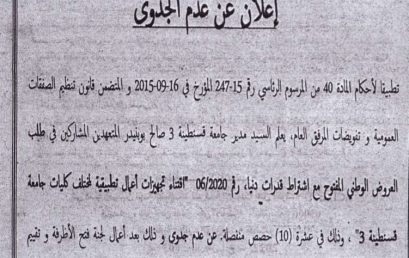 إعلان عن عدم الجدوى
تطبيقا لأحكام المادة 40 من المرسوم الرئاسي رقم 15-247 المؤرخ في 16-09-2015 و المتضمن قانون تنظيم الصفقات
العمومية و تفويضات المرفق العام، يعلم السيد مدير جامعة قسنطينة 3 صالح بوبنيدر المتعهدين المشاركين في طلب
العروض الوطني المفتوح مع اشتراط قدرات دنيا، رقم 06/2020 "اقتناء تجهيزات أعمال تطبيقية لمختلف كليات جامعة
قسنطينة 3" ، وذلك في عشرة (10) حصص منفصلة. عن عدم جدوى و ذلك بعد أعمال لجنة فتح الأظرفة و تقييم